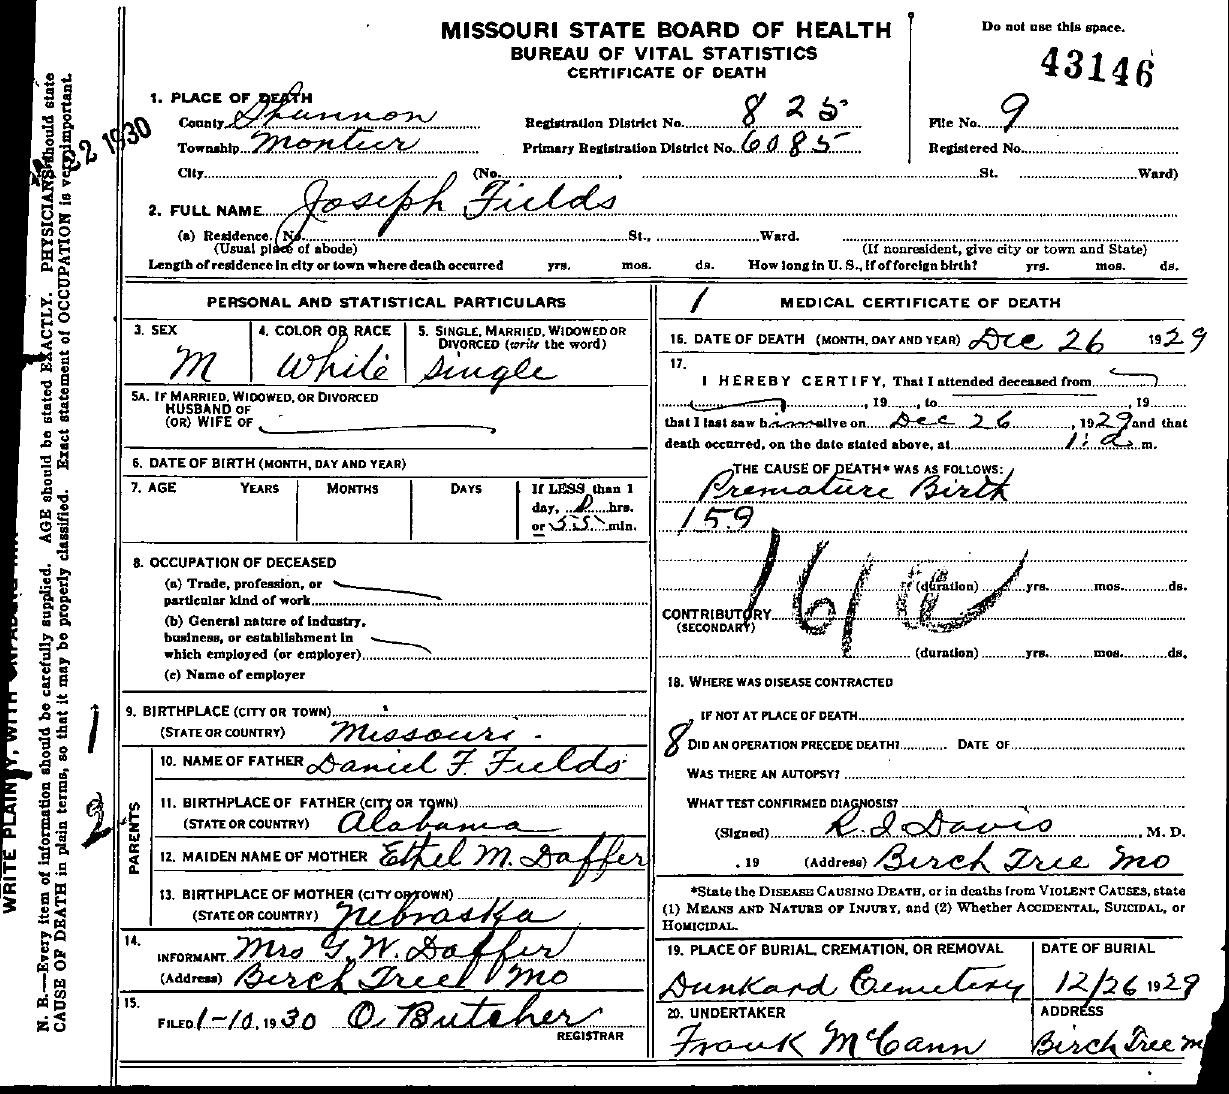 MISSOURI STATE BOARD OF HEALTH
BUREAU OF VITAL STATISTICS
CERTIFICATE OF DEATH
Do not use this space.
43146
1. PLACE OF DEATH
County Shannon Registration District No. 825 File No. 9
Township Montier Primary Registration District No. 6085 Registered No.
City (No. , St. Ward)
2. FULL NAME Joseph Fields
(a) Residence. No. St., Ward.
(Usual place of abode) (If nonresident, give city or town and State)
Length of residence in city or town where death occurred yrs. mos. ds. How long in U. S., if of foreign birth? yrs. mos. ds.
PERSONAL AND STATISTICAL PARTICULARS
3. SEX 4. COLOR OR RACE 5. SINGLE, MARRIED, WIDOWED OR
DIVORCED (write the word)
M White Single
5A. IF MARRIED, WIDOWED, OR DIVORCED
HUSBAND OF
(OR) WIFE OF
6. DATE OF BIRTH (MONTH, DAY AND YEAR)
7. AGE YEARS MONTHS DAYS If LESS than 1
day, 0 hrs.
or 55 min.
8. OCCUPATION OF DECEASED
(a) Trade, profession, or
particular kind of work
(b) General nature of industry,
business, or establishment in
which employed (or employer)
(c) Name of employer
9. BIRTHPLACE (CITY OR TOWN)
(STATE OR COUNTRY) Missouri.
PARENTS
10. NAME OF FATHER Daniel F. Fields
11. BIRTHPLACE OF FATHER (CITY OR TOWN)
(STATE OR COUNTRY) Alabama
12. MAIDEN NAME OF MOTHER Ethel M. Daffer
13. BIRTHPLACE OF MOTHER (CITY OR TOWN)
(STATE OR COUNTRY) Nebraska
14.
INFORMANT Mrs G. W. Daffer
(Address) Birch Tree Mo
15.
FILED 1-10, 1930 O. Butcher
REGISTRAR
1 MEDICAL CERTIFICATE OF DEATH
16. DATE OF DEATH (MONTH, DAY AND YEAR) Dec 26 1929
17.
I HEREBY CERTIFY, That I attended deceased from
, 19 , to , 19
that I last saw him alive on Dec 26, 1929 and that
death occurred, on the date stated above, at 1: a m.
THE CAUSE OF DEATH* WAS AS FOLLOWS:
Premature Birth
159
161a
(duration) yrs. mos. ds.
CONTRIBUTORY
(SECONDARY)
(duration) yrs. mos. ds.
18. WHERE WAS DISEASE CONTRACTED
IF NOT AT PLACE OF DEATH
8 DID AN OPERATION PRECEDE DEATH? DATE OF
WAS THERE AN AUTOPSY?
WHAT TEST CONFIRMED DIAGNOSIS?
(Signed) R. I. Davis, M. D.
, 19 (Address) Birch Tree Mo
*State the DISEASE CAUSING DEATH, or in deaths from VIOLENT CAUSES, state
(1) MEANS AND NATURE OF INJURY, and (2) Whether ACCIDENTAL, SUICIDAL, or
HOMICIDAL.
19. PLACE OF BURIAL, CREMATION, OR REMOVAL DATE OF BURIAL
Dunkard Cemetery 12/26 1929
20. UNDERTAKER ADDRESS
Frank McCann Birch Tree M
22 1930
1
2
WRITE PLAINLY, WITH UNFADING INK
N. B.—Every item of information should be carefully supplied. AGE should be stated EXACTLY. PHYSICIANS should state
CAUSE OF DEATH in plain terms, so that it may be properly classified. Exact statement of OCCUPATION is very important.